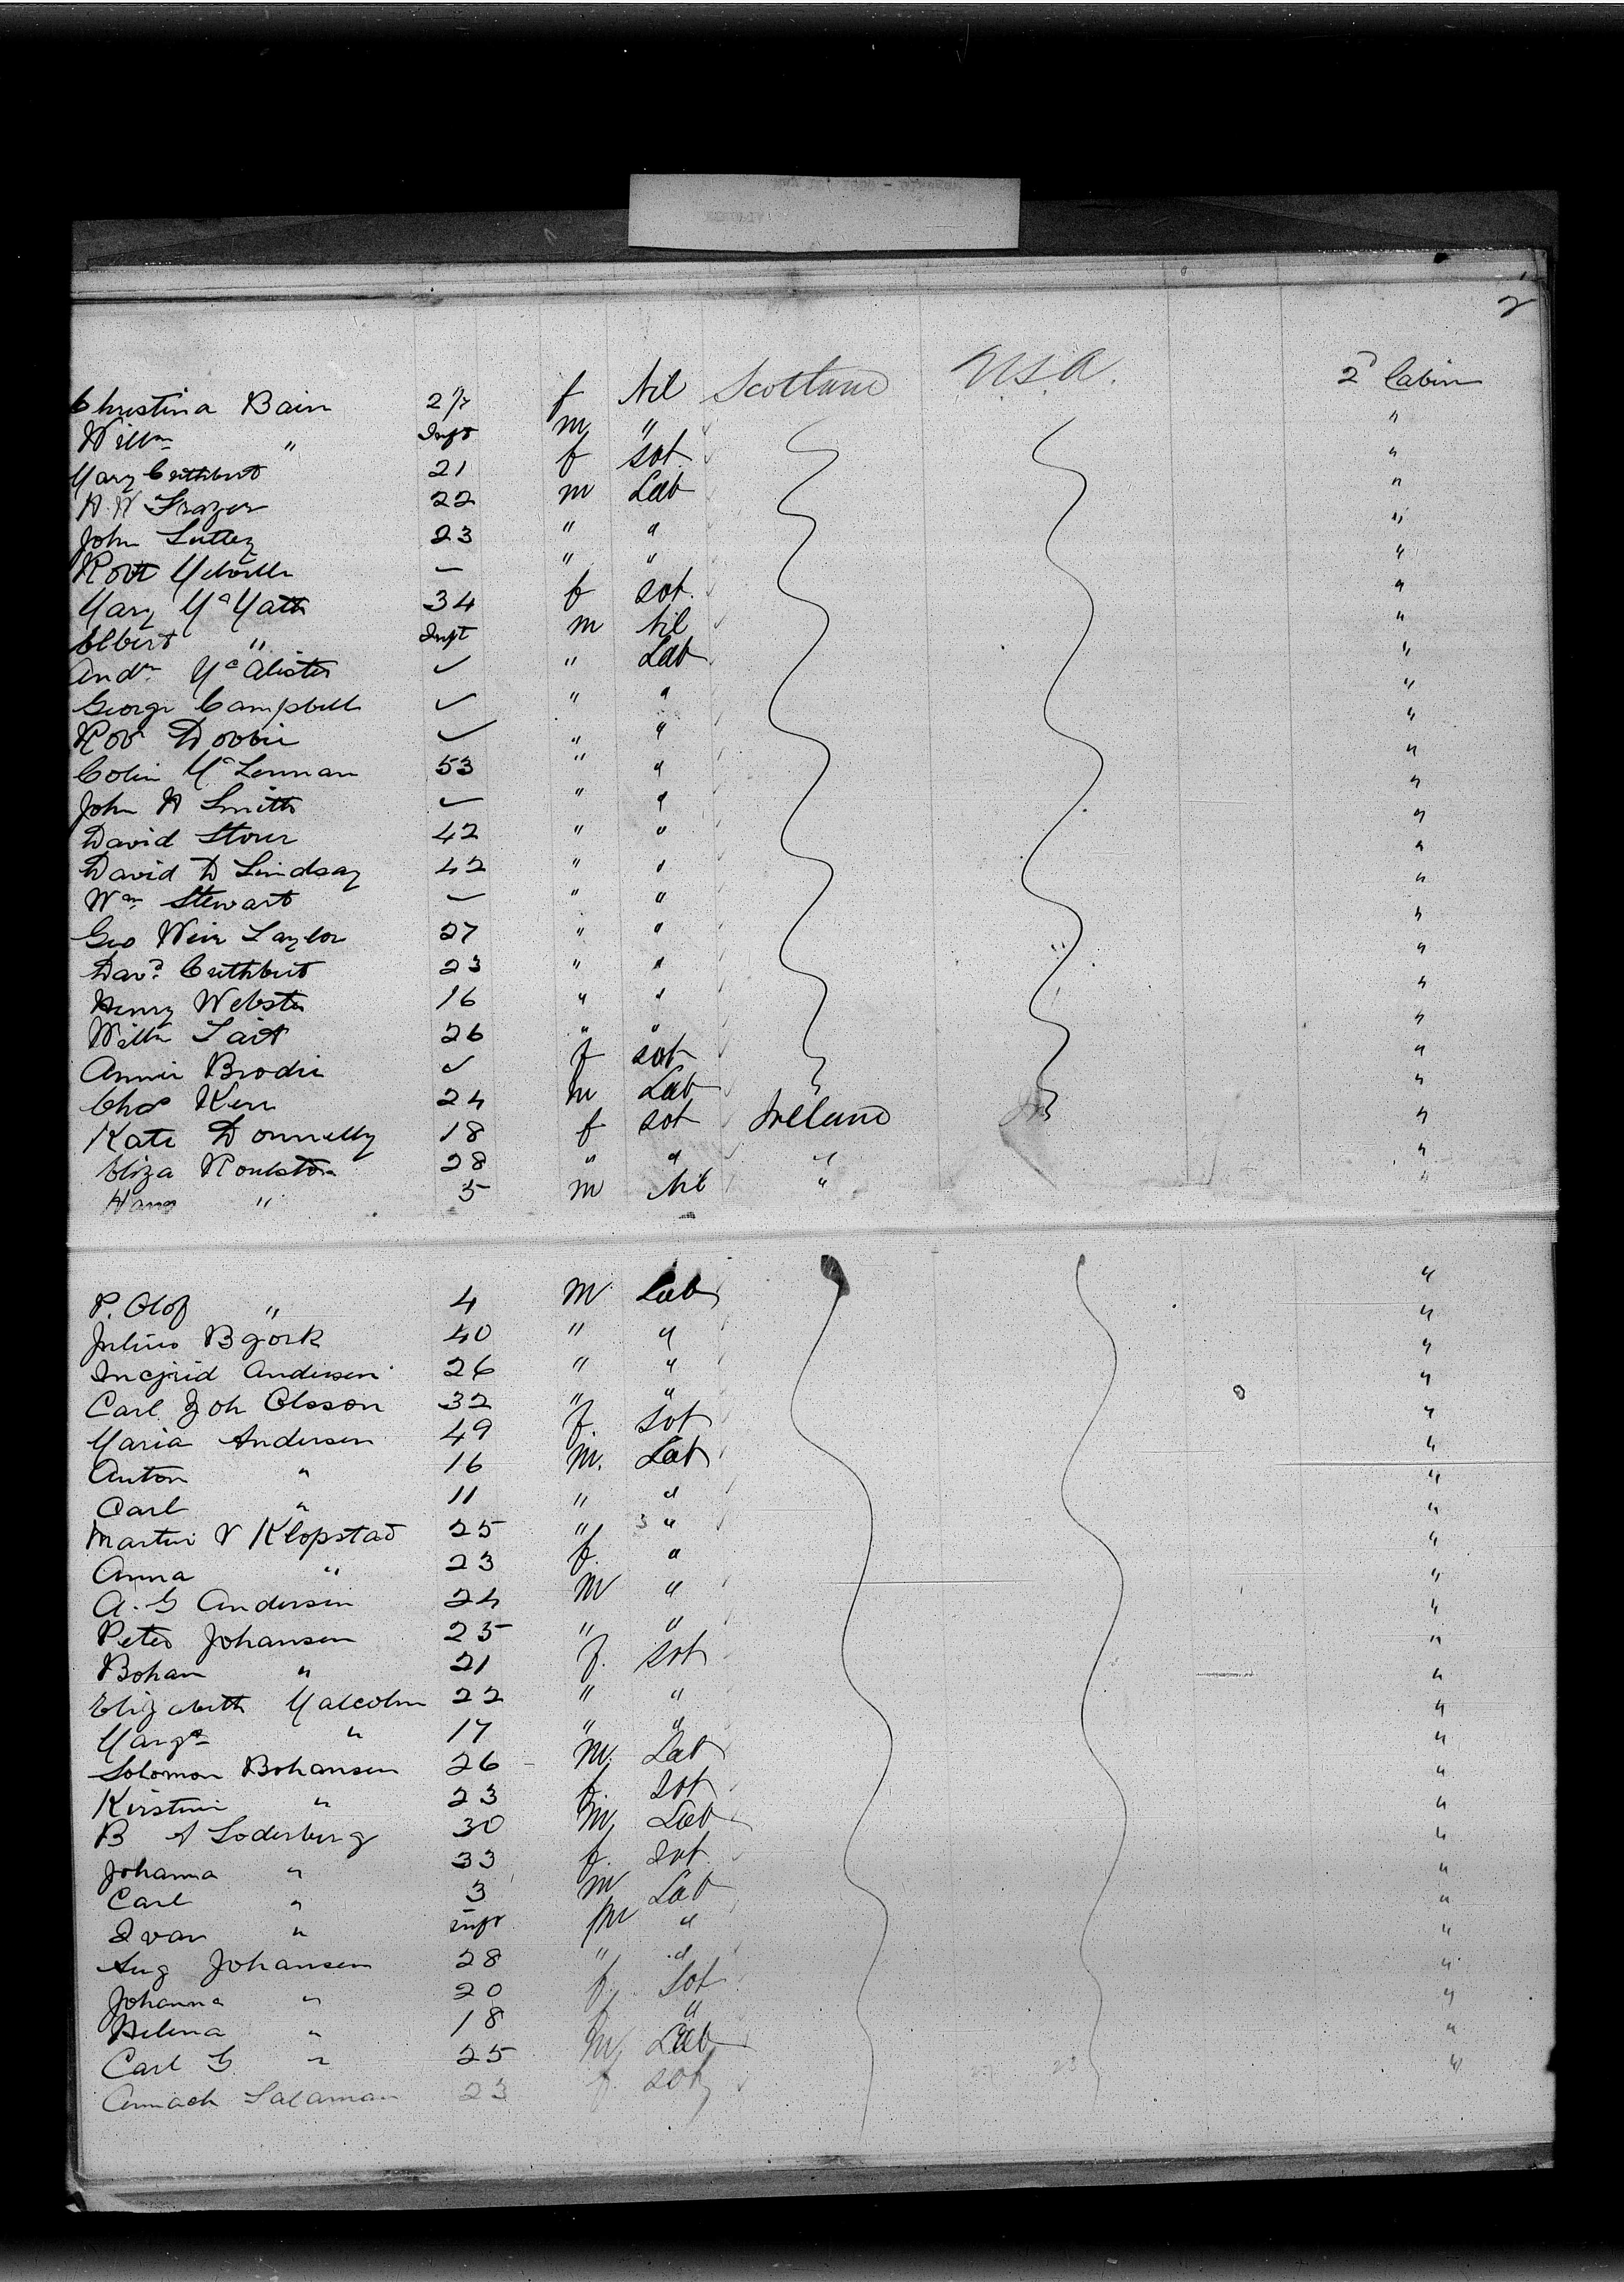 2
Christina Bain 2/7 f Nil Scotland U.S.A. 2d Cabin
Willm " Inft m " "
Mary Cuthbert 21 f sot "
22 m Lab "
John 23 " " "
Robt — " " "
Mary 34 f sot. "
Inft m Nil "
Andw McAlister ✓ " Lab "
George Campbell ✓ " " "
Rob Dobbie ✓ " " "
Colin McLennan 53 " " "
John H Smith ✓ " " "
David 42 " " "
David D Lindsay 42 " " "
Wm Stewart — " " "
Geo Weir Taylor 27 " " "
Davd Cuthbert 23 " " "
Henry Webster 16 " " "
Willm Tait 26 " " "
Annie Brodie ✓ f sot "
Chas Kerr 24 m Lab "
Kate Donnelly 18 f sot Ireland "
Eliza Roulston 28 " " " "
" 5 m Nil " "
P. Olof " 4 m Lab "
Julius Bjork 40 " " "
Ingrid Andersen 26 " " "
Carl Joh Olsson 32 " " "
Maria Andersen 49 f. sot "
Anton " 16 m. Lab "
Carl " 11 " " "
Martin Klopstad 25 " " "
Anna " 23 f. " "
A. G Andersen 24 m " "
Peter Johansen 25 " " "
Bohan " 21 f. sot "
Elizabeth Malcolm 22 " " "
Margt " 17 " " "
Solomon Bohansen 26 m. Lab "
" 23 f. sot "
B A Soderberg 30 m, Lab "
Johanna " 33 f. sot "
Carl " 3 m Lab "
Ivan " Inft m " "
Aug Johansen 28 " " "
Johanna " 20 f. sot "
Helena " 18 f " "
Carl G " 25 m, Lab "
23 f. sot "